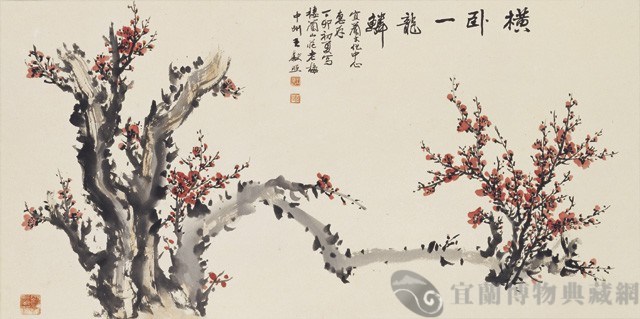 橫臥一龍鱗
宜蘭文化中心
惠存
丁卯初夏寫
棲蘭山莊老梅
中州王
宜蘭博物典藏網